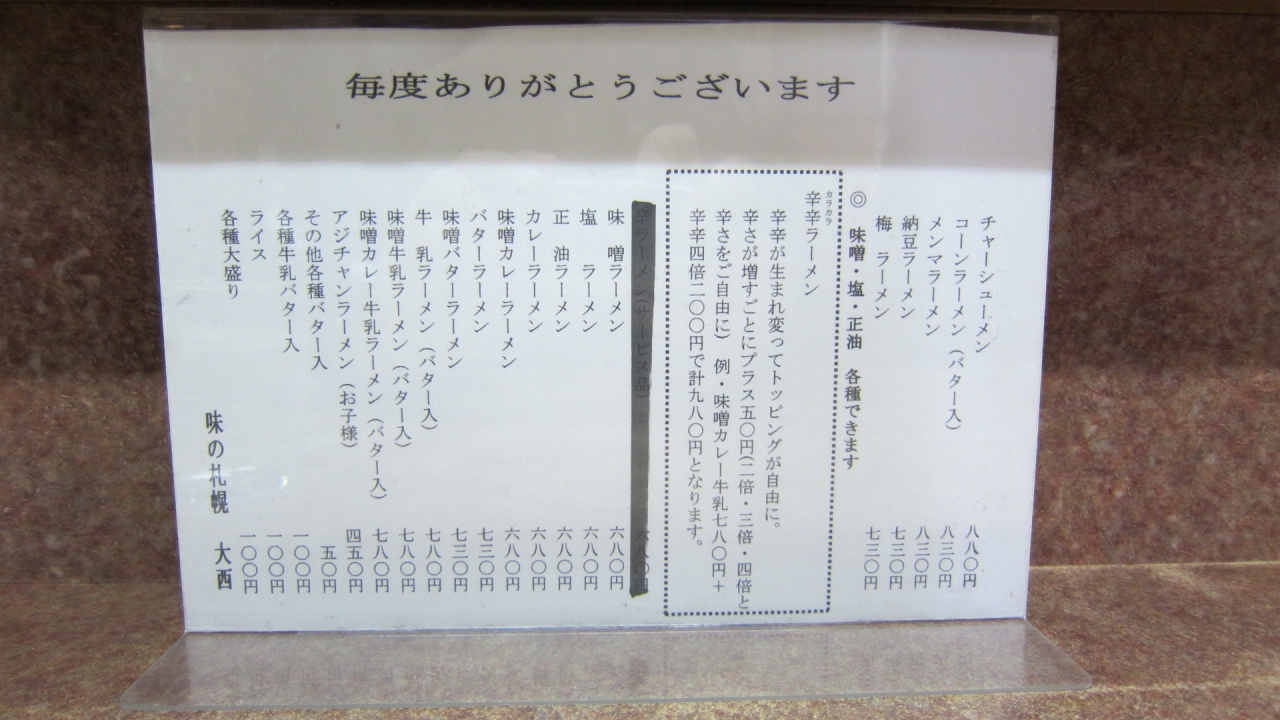 毎度ありがとうございます
チャーシューメン 八八〇円
コーンラーメン(バター入) 八三〇円
メンマラーメン 八三〇円
納豆ラーメン 七三〇円
梅 ラーメン 七三〇円
◎ 味噌・塩・正油 各種できます
カラカラ
辛辛ラーメン
辛辛が生まれ変ってトッピングが自由に。
辛さが増すごとにプラス五〇円(二倍・三倍・四倍と
辛さをご自由に) 例・味噌カレー牛乳七八〇円+
辛辛四倍二〇〇円で計九八〇円となります。
辛ラーメン(サービス品) 六八〇円
味 噌ラーメン 六八〇円
塩 ラーメン 六八〇円
正 油ラーメン 六八〇円
カレーラーメン 六八〇円
味噌カレーラーメン 六八〇円
バターラーメン 七三〇円
味噌バターラーメン 七三〇円
牛 乳ラーメン(バター入) 七八〇円
味噌牛乳ラーメン(バター入) 七八〇円
味噌カレー牛乳ラーメン(バター入) 七八〇円
アジチャンラーメン(お子様) 四五〇円
その他各種バター入 五〇円
各種牛乳バター入 一〇〇円
ライス 一〇〇円
各種大盛り 一〇〇円
味の札幌 大西